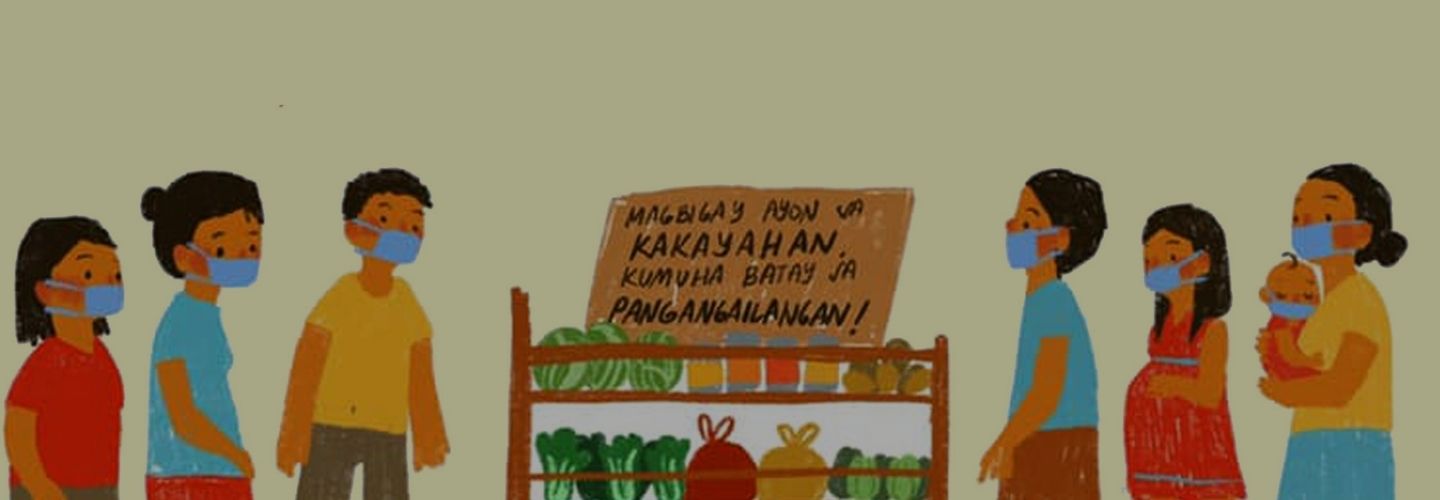 MAGBIGAY AYON SA
KAKAYAHAN,
KUMUHA BATAY SA
PANGANGAILANGAN!